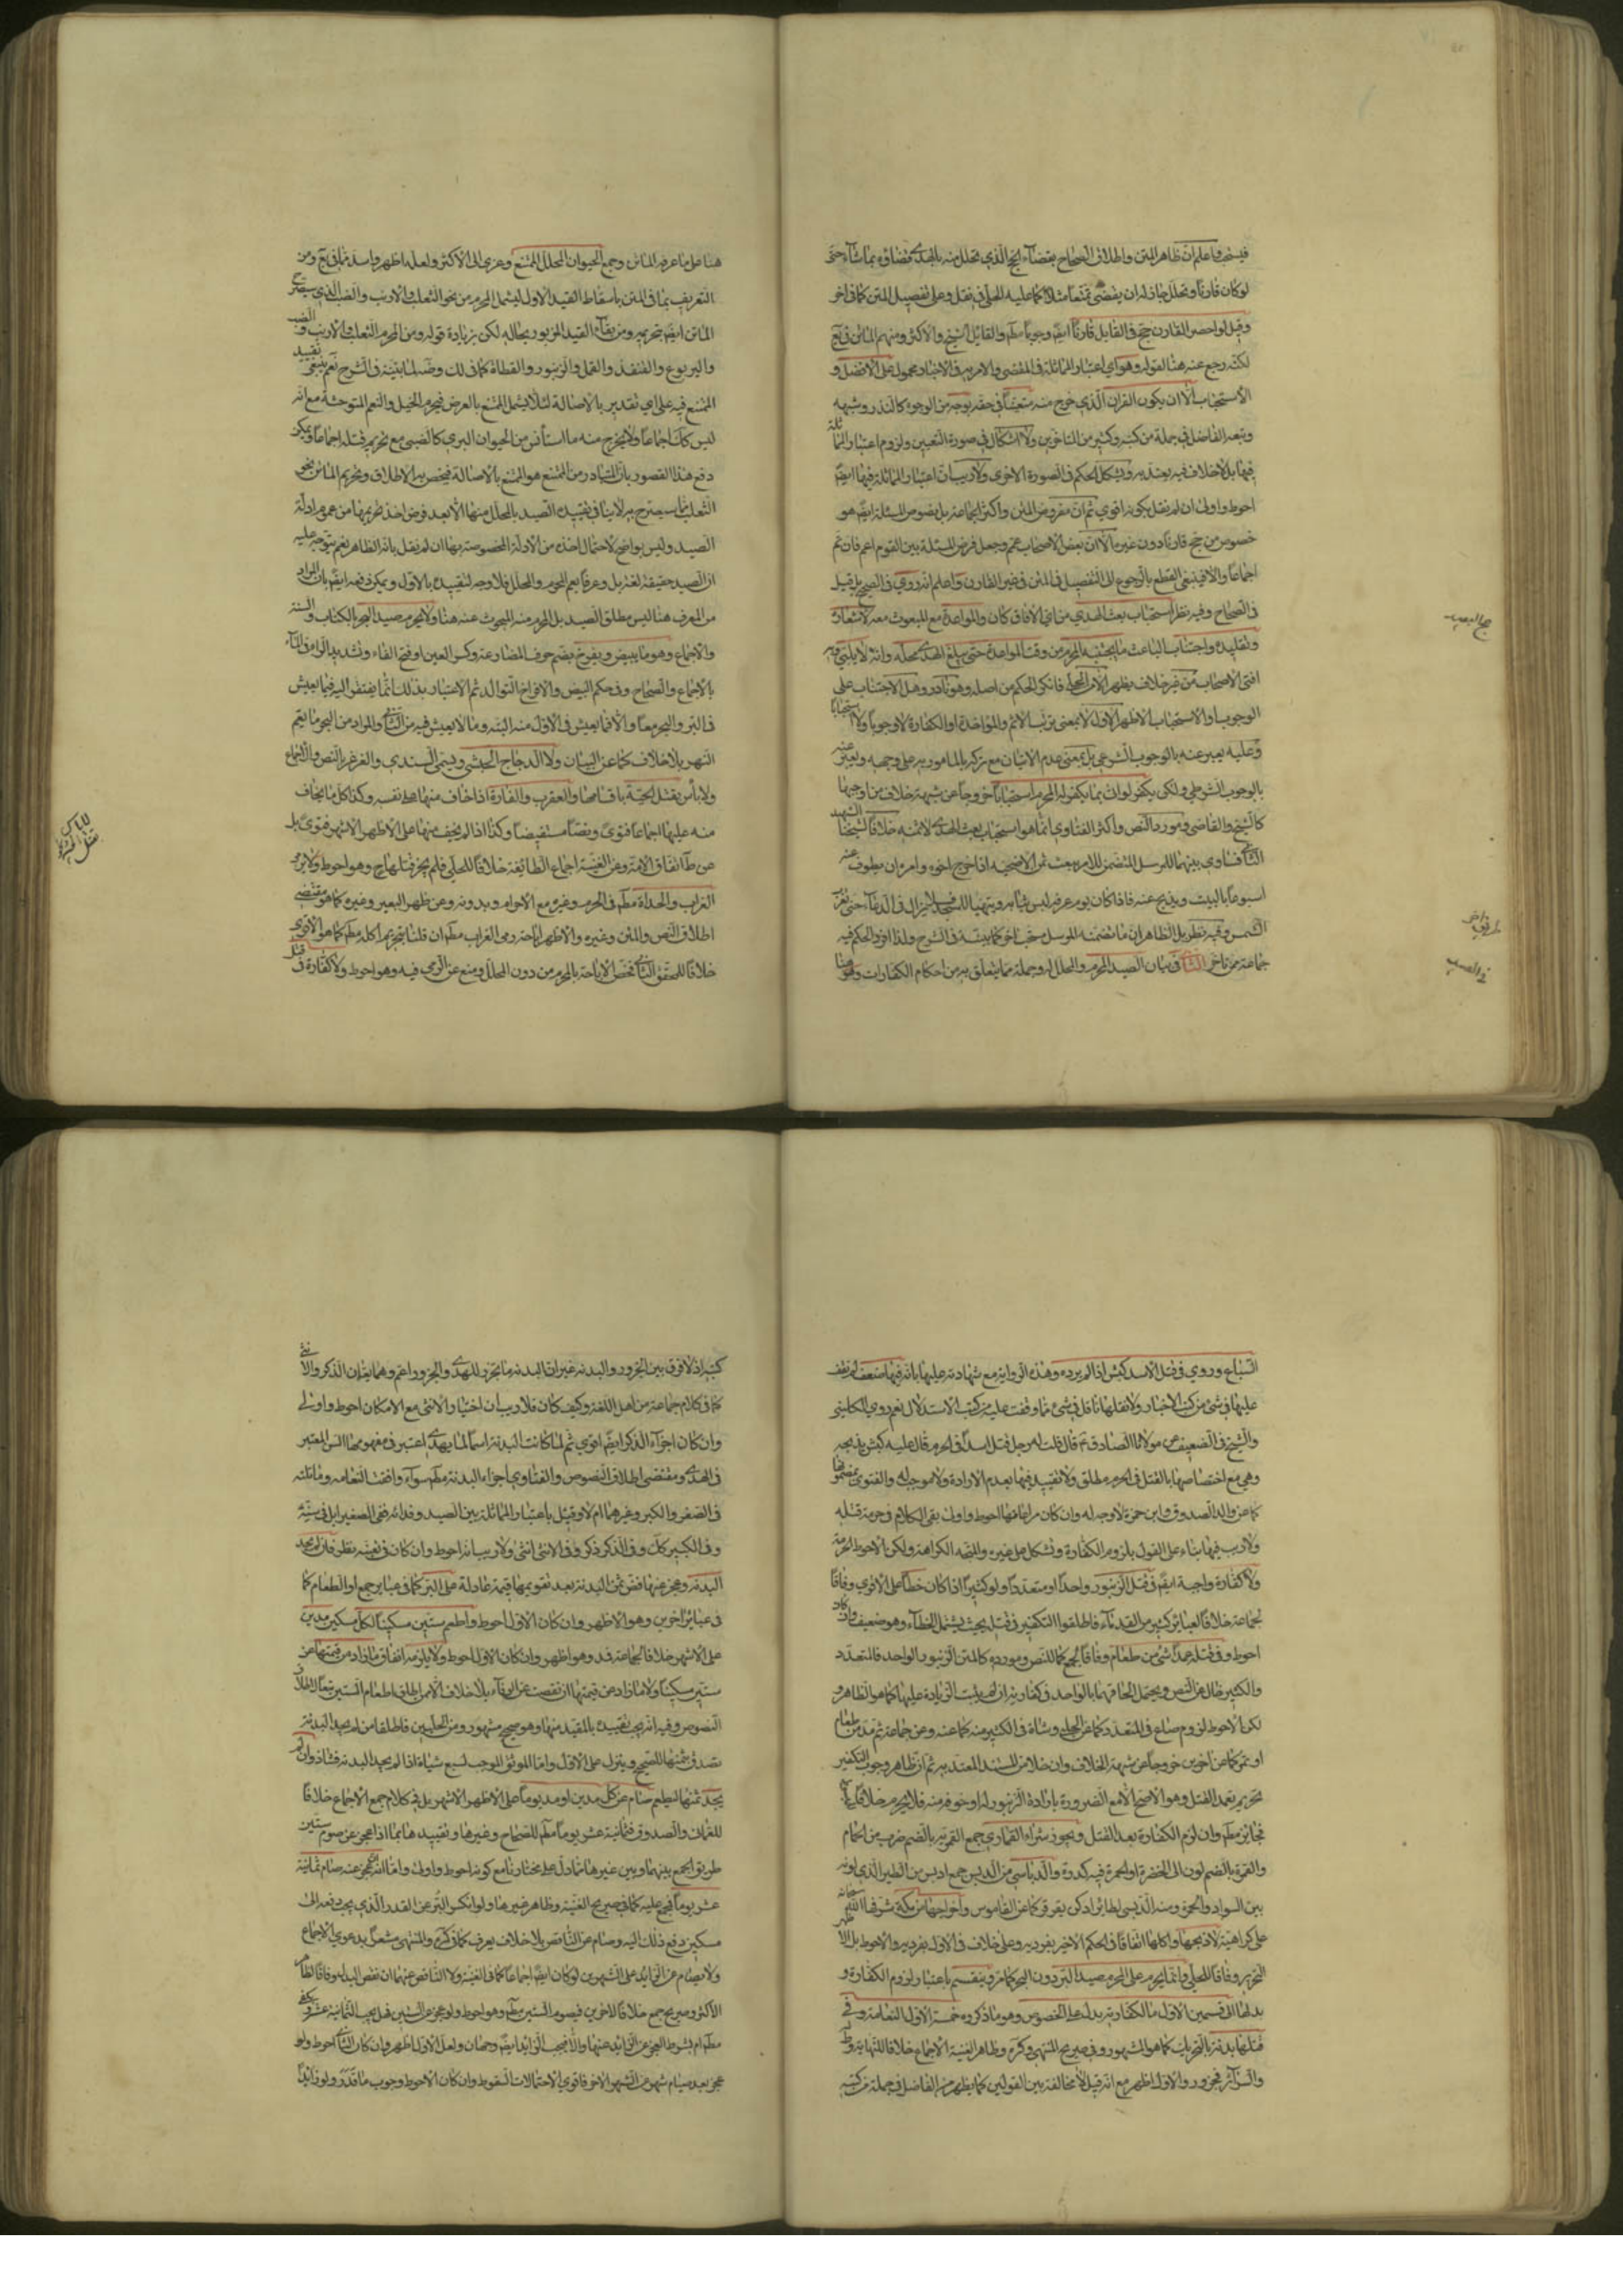 فيستفاد علم ان ظاهر المتن واطلاق الصحاح بقضاء الحج الذي تحلل منه بالهدي قضاؤه بما شاء حتى
لو كان قارنا وتحلل جاز له ان يقضي تمتعا مثلا كما عليه الحلي في نقل وعلى تفصيل المتن كما في اخر
وقيل لو احصر القارن حج في القابل قارنا ايضا وجوبا مطم والقايل الشيخ والاكثر ومنهم الماتن في يع
لكنه رجع عنه هنا لقوله وهو اي اعتبار المماثلة في المقضي والامر به في الاخبار محمول على الافضل و
الاستحباب الا ان يكون القران الذي خرج منه متعينا في حقه بوجه من الوجوه كالنذر وشبهه
وتبعه الفاضل في جملة من كتبه وكثير من المتاخرين ولا اشكال في صورة التعيين ولزوم اعتبار المماثلة
فيها بل لا خلاف فيه يعتد به ويشكل الحكم في الصورة الاخرى ولا ريب ان اعتبار المماثلة فيها ايضا
احوط واولى ان لم نقل بكونه اقوى ثم ان مفروض المتن واكثر الجماعة بل نصوص المسئلة ايضا هو
خصوص من حج قارنا دون غيره الا ان بعض الاصحاب عمم وجعل فرض المسئلة بين القوم اعم فان تم
اجماعا والا فينبغي القطع بالرجوع الى التفصيل في المتن في غير القارن واعلم انه روي في الصحيح بل قيل
في الصحاح وفيه نظر استحباب بعث الهدي من اي الافاق كان والمواعدة مع المبعوث معه لاشعاره
وتقليده واجتناب الباعث ما يجتنبه المحرم من وقت المواعدة حتى يبلغ الهدي محله وانه لا يلبي وبه
افتى الاصحاب من غير خلاف يظهر الا من الحلي فانكر الحكم من اصله وهو نادر وهل الاجتناب على
الوجوب او الاستحباب الاظهر الاول لا بمعنى ترتب الاثم والمؤاخذة او الكفارة لا وجوبا ولا استحبابا
وعليه يعبر عنه بالوجوب الشرعي بل بمعنى عدم الاتيان مع تركه بالمامور به على وجهه ويعبر عنه
بالوجوب الشرطي ولكن يكفر لو اتى بما يكفر له المحرم استحبابا خروجا عن شبهة خلاف من اوجبها
كالشيخ والقاضي ومورد النص واكثر الفتاوى انما هو استحباب بعث الهدي لا ثمنه خلافا لشيخنا الشهيد
الثاني فساوى بينهما للمرسل المتضمن للامر ببعث ثمن الاضحية اذا خرج اخوه وامره ان يطوف عنه
اسبوعا بالبيت ويذبح عنه فاذا كان يوم عرفه لبس ثيابه وتهيا للمسجد فلا يزال في الدعاء حتى تغرب
الشمس وفيه نظر بل الظاهر ان ما تضمنه المرسل مستحب اخر كما بينته في الشرح ولذا افرد الحكم فيه
جماعة ممن تاخر الثاني في بيان الصيد المحرم والمحلل له وجملة مما يتعلق به من احكام الكفارات وهو هنا
حج الصيد
طريق اخر
في الصيد
هنا على ما عرفه الماتن وجمع الحيوان المحلل الممتنع وعزي الى الاكثر ولعله اظهر واسد مما في يع ومن
التعريف بما في المتن باسقاط القيد الاول ليشمل المحرم من نحو الثعلب والارنب والضب الذي سيصرح
الماتن ايضا بتحريمه ومن بقاء القيد المزبور بحاله لكن بزيادة قوله ومن المحرم الثعلب والارنب والضب
واليربوع والقنفذ والقمل والزنبور والقطاة كما في لك وضه لما بينته في الشرح نعم ينبغي تقييد
الممتنع فيه على اي تقدير بالاصالة لئلا يشمل الممتنع بالعرض فيحرم الخيل والنعم المتوحشة مع انه
ليس كذلك اجماعا ولا يخرج منه ما استانس من الحيوان البري كالضبي مع تحريم قتله اجماعا ويمكن
دفع هذا القصور بان المتبادر من الممتنع هو الممتنع بالاصالة فيختص به الاطلاق وتحريم الماتن نحو
الثعلب مما سيصرح به لا ينافي تقييده الصيد بالمحلل منها الا بعد فرض اخذ تحريمها من عموم ادلة
الصيد وليس بواضح لاحتمال اخذه من الادلة المخصوصة بها ان لم نقل بانه الظاهر نعم يتوجه عليه
ان الصيد حقيقة لغة بل وعرفا يعم المحرم والمحلل فلا وجه لتقييده بالاول ويمكن دفعه ايضا بان المراد
من المعرف هنا ليس مطلق الصيد بل المحرم منه المبحوث عنه هنا ولا يحرم صيد البحر بالكتاب والسنة
والاجماع وهو ما يبيض ويفرخ بضم حرف المضارعة وكسر العين او فتح الفاء وتشديد الراء في الماء
بالاجماع والصحاح وفي حكم البيض والافراخ التوالد ثم الاعتبار بذلك انما يفتقر اليه فيما يعيش
في البر والبحر معا والا فما يعيش في الاول منه البتة وما لا يعيش فيه من الثاني والمراد من البحر ما يعم
النهر بلا خلاف كما عن التبيان ولا الدجاج الحبشي ويسمى السندي والغرغر بالنص والاجماع
ولا باس بقتل الحية باقسامها والعقرب والفارة اذا خاف منها على نفسه وكذا كل ما يخاف
منه عليها اجماعا فتوى ونصا مستفيضا وكذا اذا لم يخف منها على الاظهر الاشهر فتوى بل
عن ط اتفاق الامة وعن الغنية اجماع الطائفة خلافا للحلي فلم يجز قتلها ح وهو احوط ولا برمي
الغراب والحداة مطم في الحرم وغيره مع الاحرام وبدونه وعن ظهر البعير وغيره كما هو مقتضى
اطلاق النص والمتن وغيره والاظهر اباحة رمي الغراب مطم ان قلنا بتحريم اكله مطم كما هو الاقوى
خلافا للمحقق الثاني فخص الاباحة بالمحرم من دون المحلل ومنع عن الرمي فيه وهو احوط ولا كفارة في قتل
السباع وروي في قتل الاسد كبش اذا لم يرده وهذه الرواية مع شهادته عليها بانه فيها ضعف لم نقف
عليها في شئ من كتب الاخبار ولا نقلها ناقل في شئ مما وقفت عليه من كتب الاستدلال نعم روى الكليني
والشيخ في الضعيف عن مولانا الصادق ع قال قلت له رجل قتل اسدا في الحرم قال عليه كبش يذبحه
وهي مع اختصاصها بالقتل في الحرم مطلق ولا تقييد فيها بعدم الارادة ولا موجب له والفتوى بمضمونها
كما عن والد الصدوق وابن حمزة لا وجه له وان كان مراعاتها احوط واولى بقي الكلام في حرمة قتله
ولا ريب فيها بناء على القول بلزوم الكفارة وتشكل على غيره والمتجه الكراهة ولكن الاحوط الحرمة
ولا كفارة واجبة ايضا في قتل الزنبور واحدا او متعددا ولو كثيرا اذا كان خطأ على الاقوى وفاقا
لجماعة خلافا لعبائر كثير من القدماء فاطلقوا التكفير في قتله بحيث يشمل الخطاء وهو ضعيف وان كان
احوط وفي قتله عمدا شئ من طعام وفاقا لجمع كما للنص ومورده كالمتن الزنبور الواحد فالتعدد
والكثير خال عن النص ويحتمل الحاقهما بالواحد في كفارته ان لم يثبت الزيادة عليها كما هو الظاهر و
لكن الاحوط لزوم صاع في المتعدد كما عن الحلبي وشاة في الكثير منه كما عنه وعن جماعة ثم مد من طعام
او تمر كما عن اخرين خروجا عن شبهة الخلاف وان خلا من المستند المعتد به ثم ان ظاهر وجوب التكفير
تحريم تعمد القتل وهو الاصح الا مع الضرورة بارادة الزنبور له او خوفه منه فلا يحرم خلافا
فجائز مطم وان لزم الكفارة بعد القتل ويجوز شراء القماري جمع القمرية بالضم ضرب من الحمام
والقمرة بالضم لون الى الخضرة او الحمرة فيه كدرة والدباسي من الدبس جمع ادبس من الطير الذي لونه
بين السواد والحمرة ومنه الدبسي لطائر ادكن يقرقر كما عن القاموس واخراجها من مكة شرفها الله سبحانه
على كراهية لا ذبحها واكلها اتفاقا في الحكم الاخير بفرديه وعلى خلاف في الاول بفرديه والاحوط بل الاظهر
التحريم وفاقا للحلي وانما يحرم على المحرم صيد البر دون البحر كما مر وينقسم باعتبار لزوم الكفارة و
بدلها الى قسمين الاول ما لكفارته بدل على الخصوص وهو ما ذكروه خمسة الاول النعامة وفي
قتلها بدنة بالتحريك كما هو المشهور وفي صريح المنتهى وكره وظاهر الغنية الاجماع خلافا للنهاية وط
والسرائر فجزور والاول اظهر مع انه قيل لا مخالفة بين القولين كما يظهر من الفاضل في جملة من كتبه
كتبه اذ لا فرق بين الجزور والبدنة غير ان البدنة ما يحرز للهدي والجزور اعم وهما يعمان الذكر والانثى
كما في كلام جماعة من اهل اللغة وكيف كان فلا ريب ان اختيار الانثى مع الامكان احوط واولى
وان كان اجزاء الذكر ايضا اقوى ثم لما كانت البدنة اسما لما يهدى اعتبر في مفهومها السن المعتبر
في الهدي ومقتضى اطلاق النصوص والفتاوى اجزاء البدنة مطم سواء وافقت النعامة وماثلته
في الصغر والكبر وغيرهما ام لا وقيل باعتبار المماثلة بين الصيد وفدائه ففي الصغير ابل في سنه
وفي الكبير كذلك وفي الذكر ذكر وفي الانثى انثى ولا ريب انه احوط وان كان في تعينه نظر فان لم يجد
البدنة وعجز عنها فض ثمن البدنة بعد تقويمها قيمة عادلة على البر كما في عبائر جمع او الطعام كما
في عبائر اخرين وهو الاظهر وان كان الاول احوط واطعم ستين مسكينا لكل مسكين مدين
على الاشهر خلافا لجماعة فمد وهو اظهر وان كان الاول احوط ولا يلزمه انفاق ما زاد من قيمتها عن
ستين مسكينا ولا ما زاد عن قيمتها ان نقصت عن ايفاء بلا خلاف الا من اطلق اطعام الستين تبعا لاطلاق
النصوص وفيه انه يجب تقييده بالمقيد منها وهو صحيح مشهور ومن الحلبيين فاطلقا من لم يجد البدنة
تصدق بثمنها للصحيح وينزل على الاول واما الموثق الموجب لسبع شياه اذا لم يجد البدنة فشاذ وان لم
يجد ثمنها ليطعم صام عن كل مدين او مد يوما على الاظهر الاشهر بل في كلام جمع الاجماع خلافا
للعماني والصدوق فثمانية عشر يوما مطم للصحاح وغيرها وتقييدها بما اذا عجز عن صوم ستين
طريق الجمع بينهما وبين غيرها مما دل على مختارنا مع كونه احوط واولى واما اذا عجز عنه صام ثمانية
عشر يوما فمجمع عليه كما في صريح الغنية وظاهر غيرها ولو انكسر البر عن القدر الذي يجب دفعه الى
مسكين دفع ذلك اليه وصام عن الناقص بلا خلاف يعرف كما في كره والمنتهى مشعرا بدعوى الاجماع
ولا يصام عن الزائد على الشهرين لو كان ايضا اجماعا كما في الغنية ولا الناقص عنهما ان نقص البدل وفاقا لظاهر
الاكثر وصريح جمع خلافا لاخرين فيصوم الستين مطم وهو احوط ولو عجز عن الستين فهل يجب الثمانية عشر ويكفي
مطم ام بشرط العجز عن الزائد عنها والا فيجب الزائد ايضا وجهان ولعل الاول اظهر وان كان الثاني احوط ولو
عجز بعد صيام شهر عن الشهر الاخر فاقوى الاحتمالات السقوط وان كان الاحوط وجوب ما قدر ولو زائدا